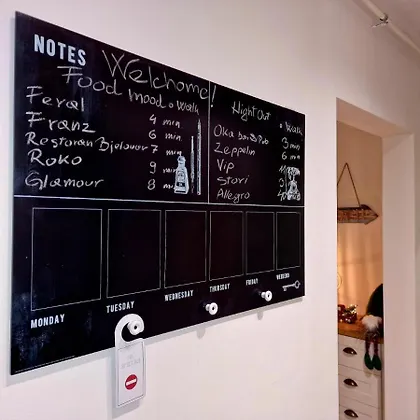 NOTES
Welchome!
Food mood o Walk
Feral 4 min
Franz 6 min
Restoran Bjelovar 7 min
Roko 9 min
Glamour 8 min
Night Out o Walk
Oka bar & Pub 3 min
Zeppelin 6 min
Vip
Stori
Allegro
MONDAY
TUESDAY
WEDNESDAY
THURSDAY
FRIDAY
WEEKEND